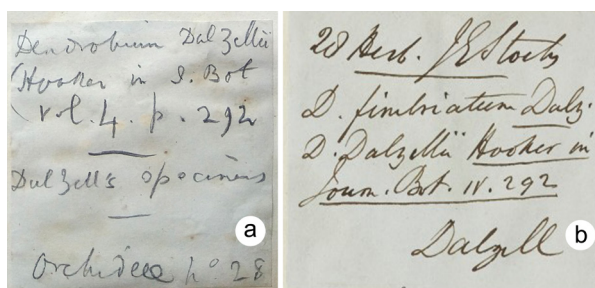 Dendrobium Dalzellii
Hooker in J. Bot
vol. 4. p. 292
Dalzell's specimens
Orchideae No 28
a
28 Herb. J E Stocks
D. fimbriatum Dalz.
D. Dalzellii Hooker in
Journ. Bot. IV. 292
Dalzell
b